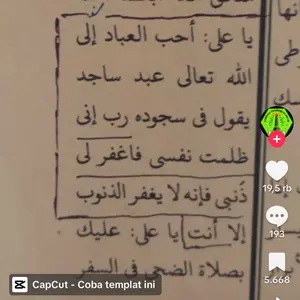 يا على: أحب العباد إلى
الله تعالى عبد ساجد
يقول فى سجوده رب إنى
ظلمت نفسى فاغفر لى
ذنبى فإنه لا يغفر الذنوب
إلا أنت يا على: عليك
بصلاة الضحى فى السفر
19,5 rb
193
5.668
CapCut - Coba templat ini